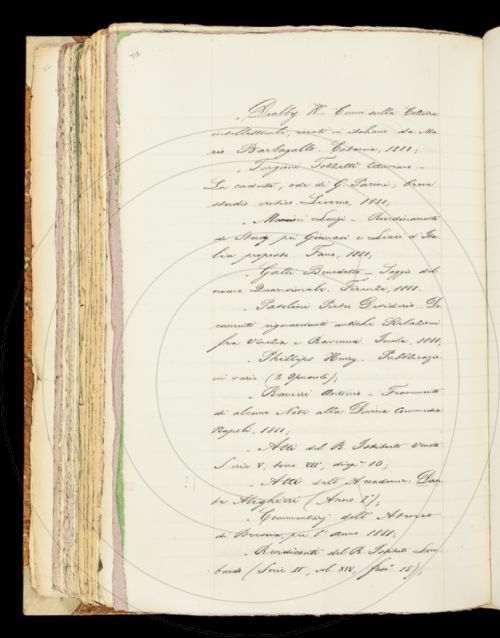 Dalbey W. Cenni sulla Cultura
intellettuale, recati in italiano da Ma
rio Barbagallo. Catania, 1881;
Targioni Tozzetti Ottaviano -
La caduta, ode di G. Parini, breve
studio critico. Livorno, 1881;
Luigi - Riordinamento
di Studj pei Ginnasi e Licei d'Ita
lia proposto. Fano, 1881;
Gatti Benedetto - Saggio del
Firenze, 1881.
Pasolini Pietro Desiderio. Do
cumenti riguardanti antiche Relazioni
fra Venezia e Ravenna. Imola, 1881;
Phillips Henry. Pubblicazio
ni varie (2 Opuscoli);
Ranieri Antonio - Frammento
di alcune Note alla Divina Commedia
Napoli, 1881;
Atti del R. Istituto Veneto
Serie V, tomo VII, disp. 10;
Atti dell'Accademia Dan
te Alighieri (Anno I);
Commentarj dell'Ateneo
di Brescia per l'anno 1881;
Rendiconti del R. Istituto Lom
bardo (Serie II, vol XIV, fasc. 15);